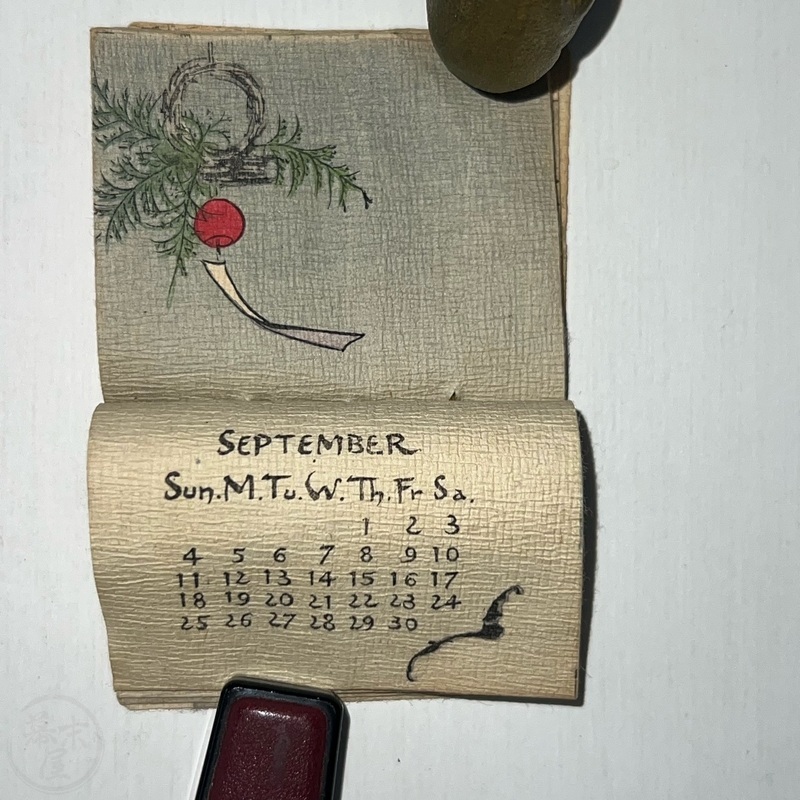 SEPTEMBER
Sun. M. Tu. W. Th. Fr Sa.
1 2 3
4 5 6 7 8 9 10
11 12 13 14 15 16 17
18 19 20 21 22 23 24
25 26 27 28 29 30
幕末屋